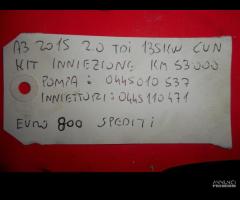 A3 2015 2.0 TDI 135KW CUN
KIT INIEZIONE KM 53000
POMPA: 0445010537
INIETTORI: 0445110471
EURO 800 SPEDITI